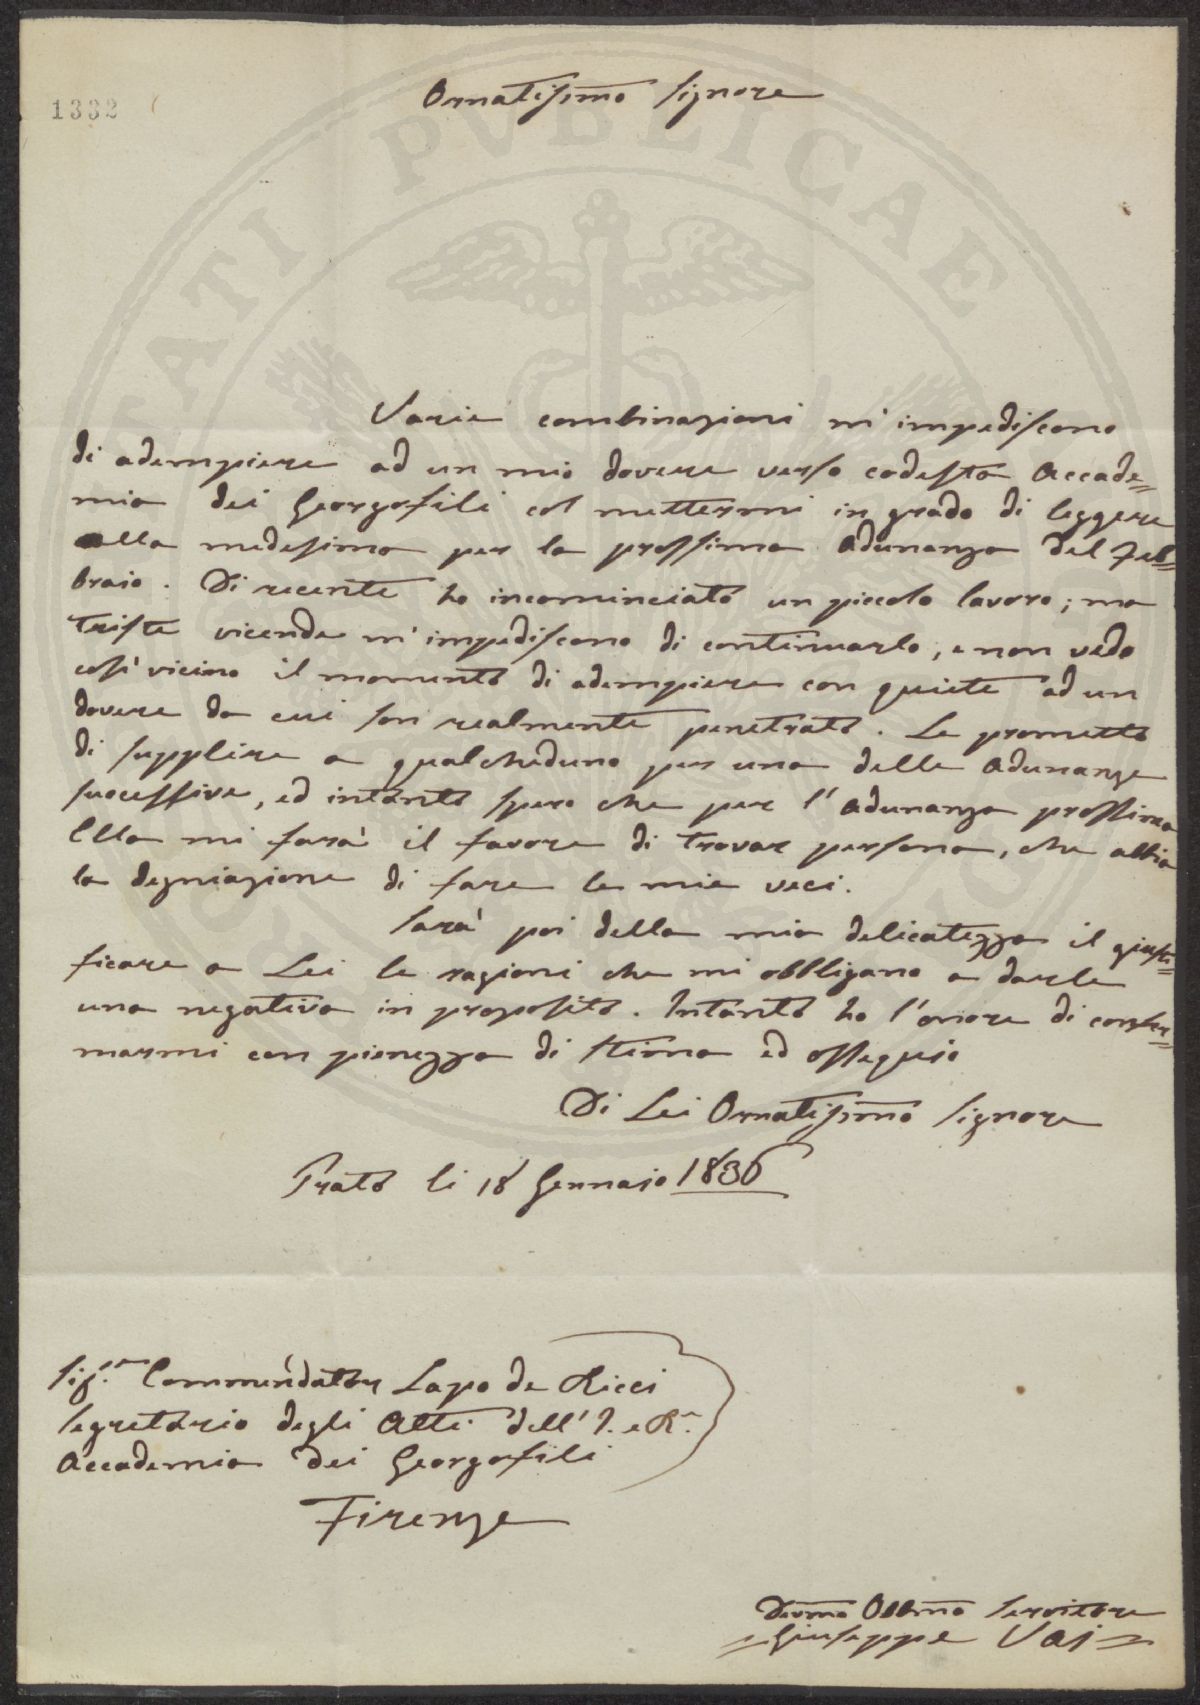 1332
Ornatissimo Signore
Varie combinazioni m'impediscono
di adempiere ad un mio dovere verso codesta Accade=
mia dei Georgofili col mettermi in grado di leggere
alla medesima per la prossima Adunanza del Feb=
braio. Di recente ho incominciato un piccolo lavoro; ma
triste vicende m'impediscono di continuarlo, e non vedo
così vicino il momento di adempiere con quiete ad un
dovere da cui son realmente penetrato. Le prometto
di supplire a qualcheduno per una delle Adunanze
successive, ed intanto spero che per l'Adunanza prossima
Ella mi farà il favore di trovar persona, che abbia
la degniazione di fare le mie veci.
Sarà poi della mia delicatezza il giusti=
ficare a Lei le ragioni che mi obbligano a darle
una negativa in proposito. Intanto ho l'onore di confer=
marmi con pienezza di stima ed ossequio
Di Lei Ornatissimo Signore
Prato li 18 Gennaio 1836
Sig.re Commendator Lapo de Ricci
Segretario degli Atti dell' I. e R.
Accademia dei Georgofili
Firenze
Devmo Obbmo Servitore
Giuseppe Vai